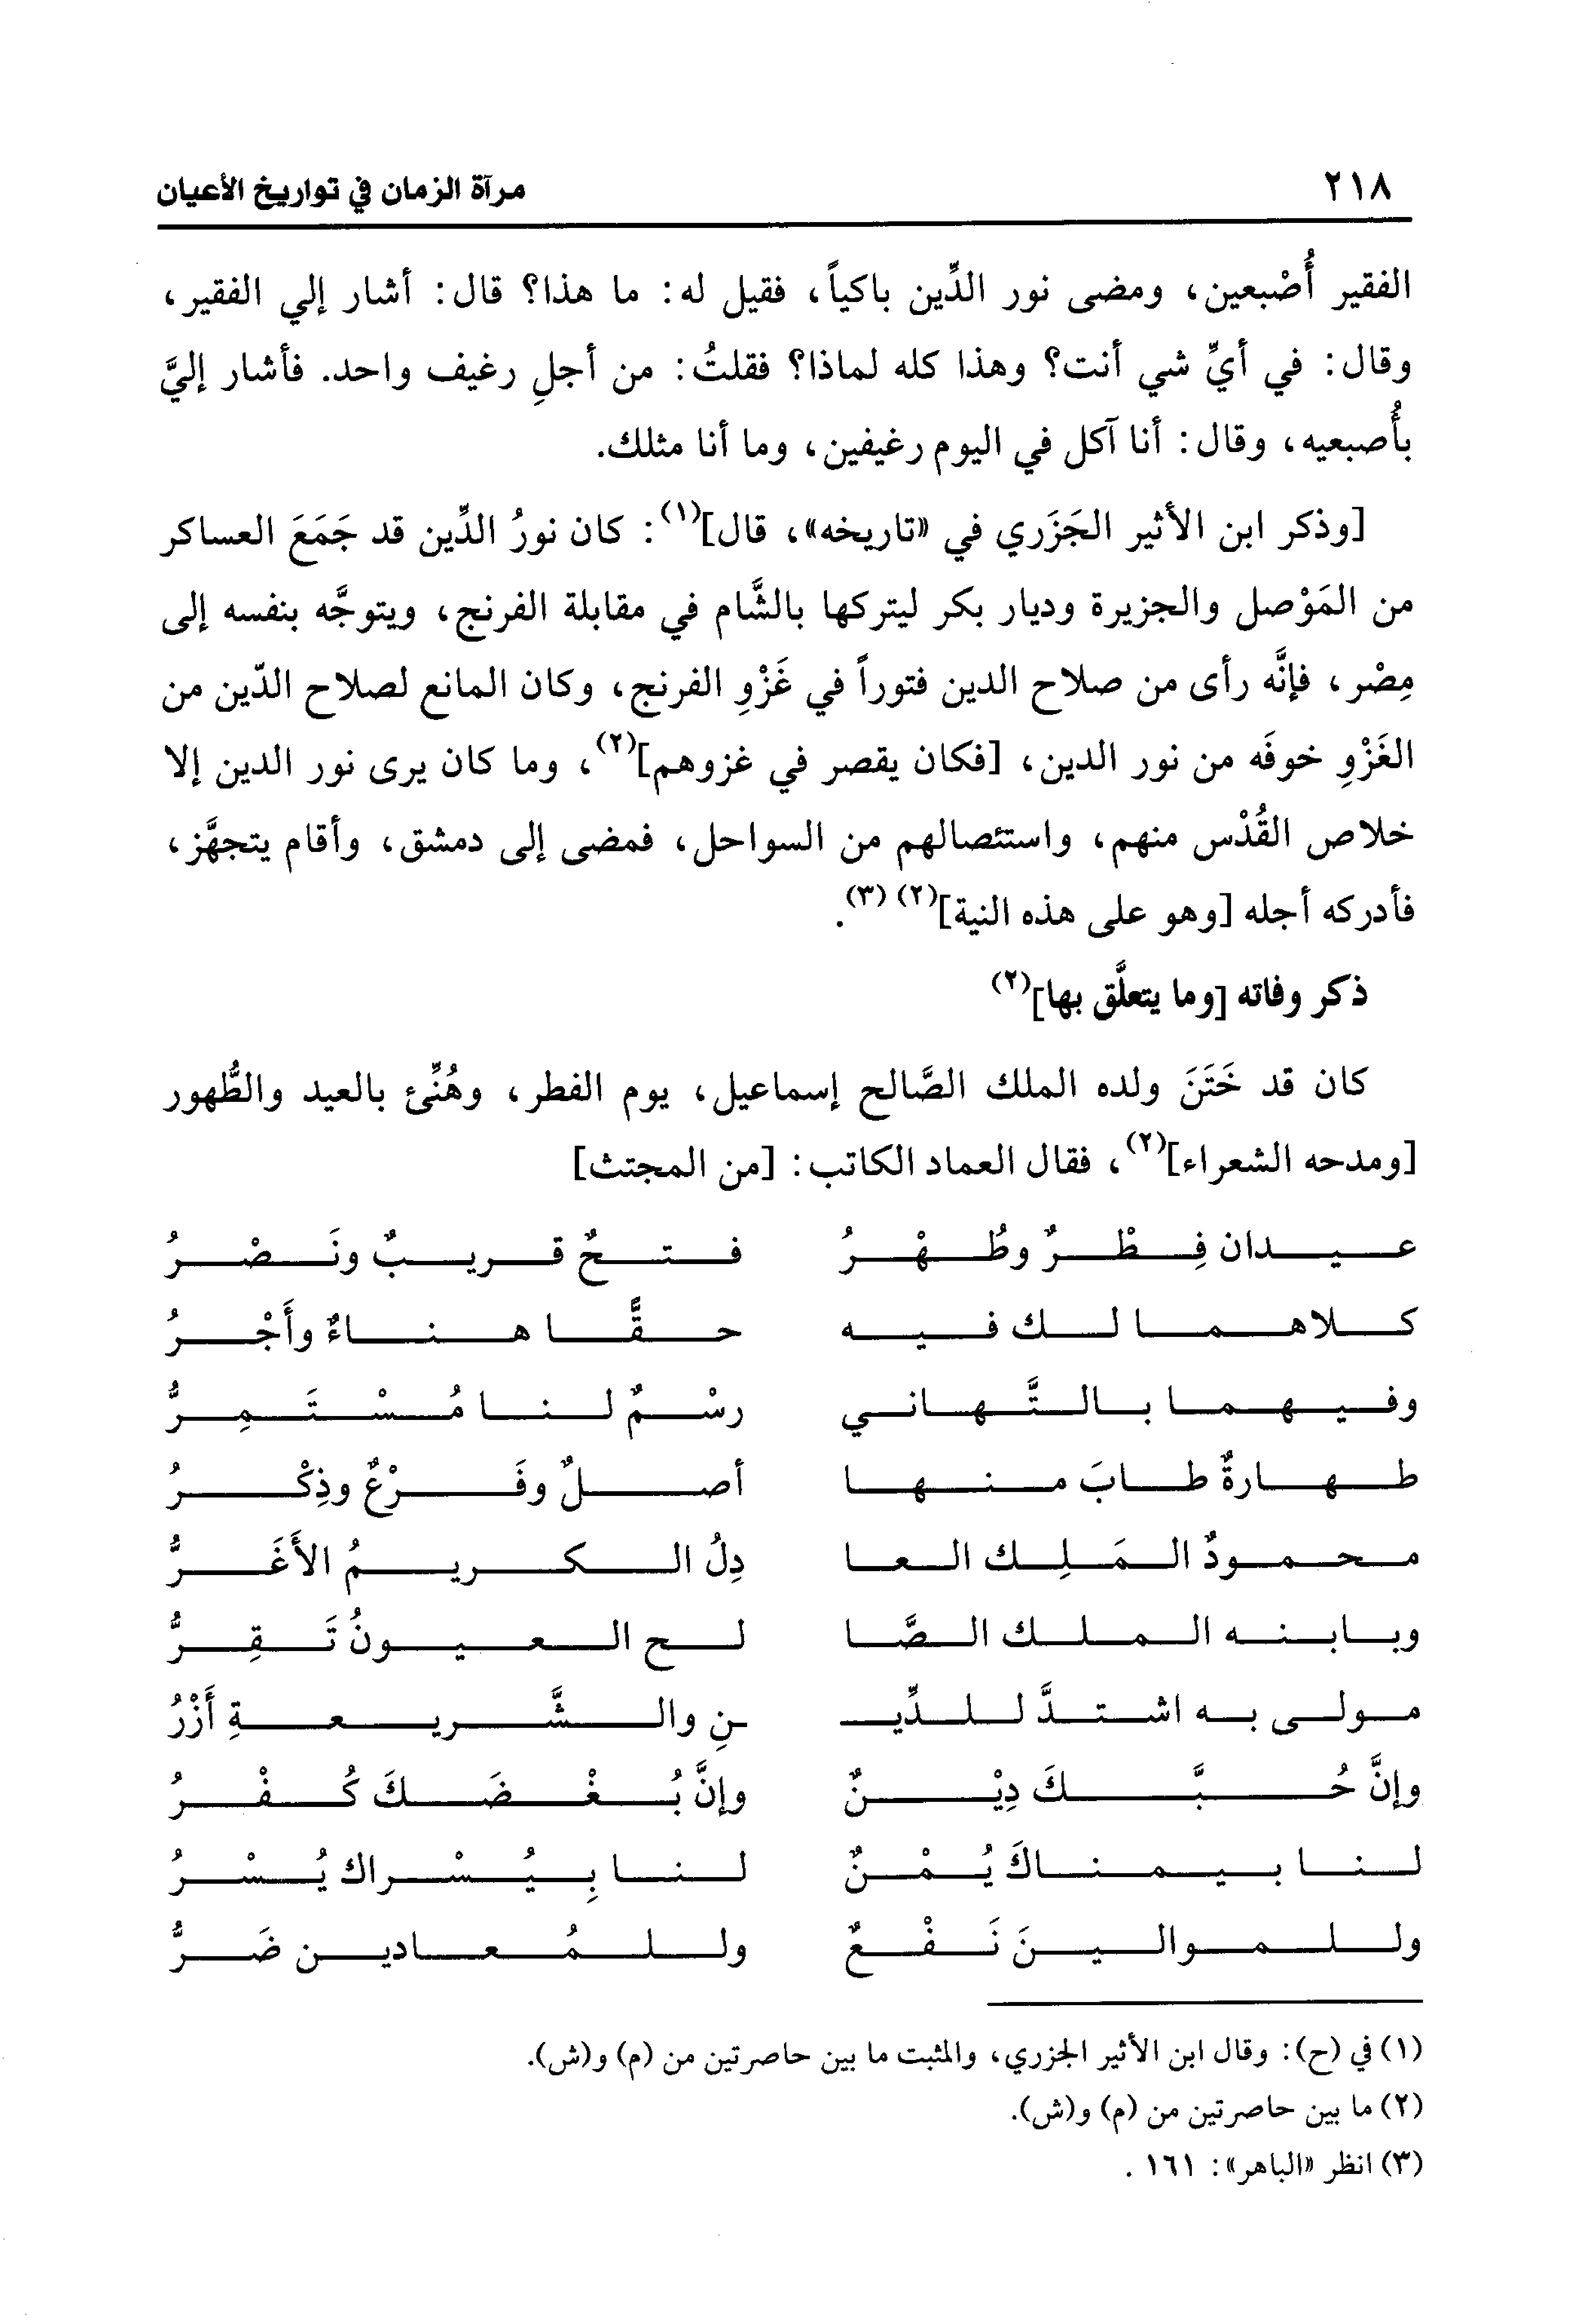 ٢١٨ مرآة الزمان في تواريخ الأعيان
الفقير أُصْبعين، ومضى نور الدِّين باكياً، فقيل له: ما هذا؟ قال: أشار إلي الفقير،
وقال: في أيِّ شي أنت؟ وهذا كله لماذا؟ فقلتُ: من أجلِ رغيف واحد. فأشار إليَّ
بأُصبعيه، وقال: أنا آكل في اليوم رغيفين، وما أنا مثلك.
[وذكر ابن الأثير الجَزَري في «تاريخه»، قال](١): كان نورُ الدِّين قد جَمَعَ العساكر
من المَوْصل والجزيرة وديار بكر ليتركها بالشَّام في مقابلة الفرنج، ويتوجَّه بنفسه إلى
مِصْر، فإنَّه رأى من صلاح الدين فتوراً في غَزْوِ الفرنج، وكان المانع لصلاح الدّين من
الغَزْوِ خوفَه من نور الدين، [فكان يقصر في غزوهم](٢)، وما كان يرى نور الدين إلا
خلاص القُدْس منهم، واستئصالهم من السواحل، فمضى إلى دمشق، وأقام يتجهَّز،
فأدركه أجله [وهو على هذه النية](٢) (٣).
ذكر وفاته [وما يتعلَّق بها](٢)
كان قد خَتَنَ ولده الملك الصَّالح إسماعيل، يوم الفطر، وهُنِّئ بالعيد والطُّهور
[ومدحه الشعراء](٢)، فقال العماد الكاتب: [من المجتث]
عيدان فِطْرٌ وطُهْرُ فتحٌ قريبٌ ونَصْرُ
كلاهما لك فيه حقًّا هناءٌ وأَجْرُ
وفيهما بالتَّهاني رسْمٌ لنا مُسْتَمِرُّ
طهارةٌ طابَ منها أصلٌ وفَرْعٌ وذِكْرُ
محمودٌ المَلِك العا دِلُ الكريمُ الأَغَرُّ
وبابنه الملك الصَّا لح العيونُ تَقِرُّ
مولى به اشتدَّ للدِّيـ ـنِ والشَّريعةِ أَزْرُ
وإنَّ حُبَّكَ دِيْنٌ وإنَّ بُغْضَكَ كُفْرُ
لنا بيمناكَ يُمْنٌ لنا بِيُسْراك يُسْرُ
وللموالينَ نَفْعٌ وللمُعادين ضَرُّ
(١) في (ح): وقال ابن الأثير الجزري، والمثبت ما بين حاصرتين من (م) و(ش).
(٢) ما بين حاصرتين من (م) و(ش).
(٣) انظر «الباهر»: ١٦١ .